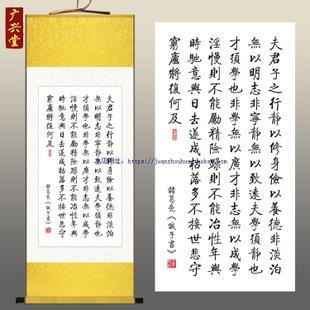 广兴堂
夫君子之行靜以修身儉以養德非淡泊
無以明志非寧靜無以致遠夫學須靜也
才須學也非學無以廣才非志無以成學
淫慢則不能勵精險躁則不能冶性年與
時馳意與日去遂成枯落多不接世悲守
窮廬將復何及
諸葛亮《誡子書》
夫君子之行靜以修身儉以養德非淡泊
無以明志非寧靜無以致遠夫學須靜也
才須學也非學無以廣才非志無以成學
淫慢則不能勵精險躁則不能冶性年與
時馳意與日去遂成枯落多不接世悲守
窮廬將復何及
諸葛亮《誡子書》